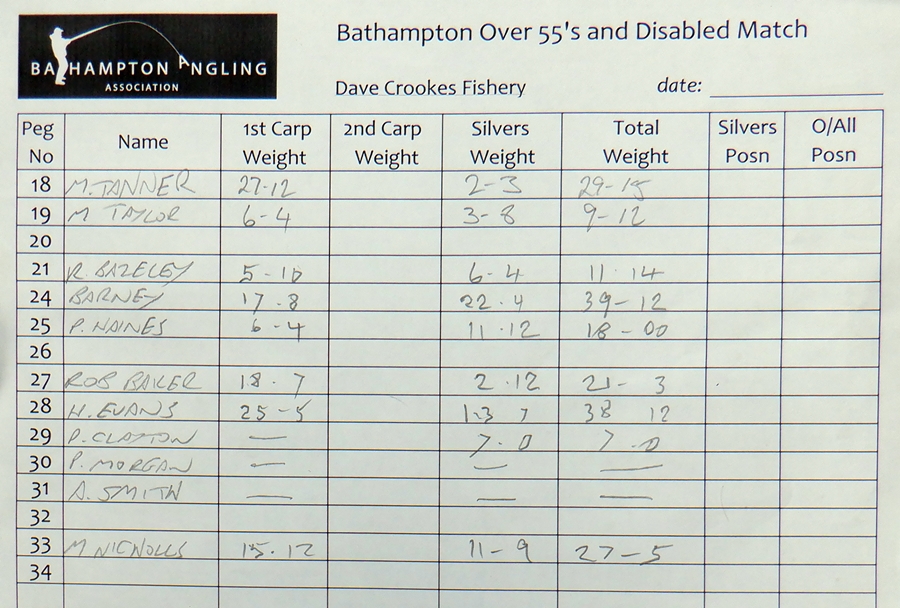 BATHAMPTON ANGLING
ASSOCIATION
Bathampton Over 55's and Disabled Match
Dave Crookes Fishery date:
Peg No Name 1st Carp Weight 2nd Carp Weight Silvers Weight Total Weight Silvers Posn O/All Posn
18 M. TANNER 27-12 2-3 29-15
19 M TAYLOR 6-4 3-8 9-12
20
21 R. BAZELEY 5-10 6-4 11 14
24 BARNEY 17-8 22.4 39-12
25 P. HAINES 6-4 11.12 18-00
26
27 ROB 18.7 2.12 21-3
28 H. EVANS 25-5 13 7 38 12
29 P. CLAYTON — 7.0 7.0
30 P. MORGAN — — —
31 A. SMITH — — —
32
33 M NICHOLLS 15.12 11-9 27-5
34